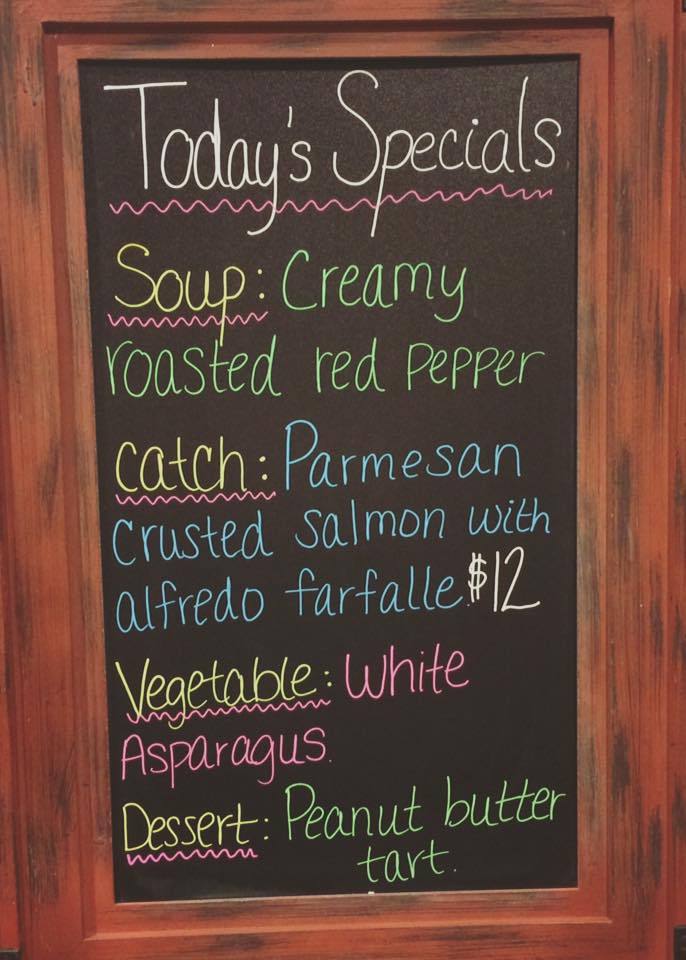 Today's Specials
Soup: Creamy
roasted red pepper
catch: Parmesan
crusted salmon with
alfredo farfalle. $12
Vegetable: White
Asparagus.
Dessert: Peanut butter
tart.